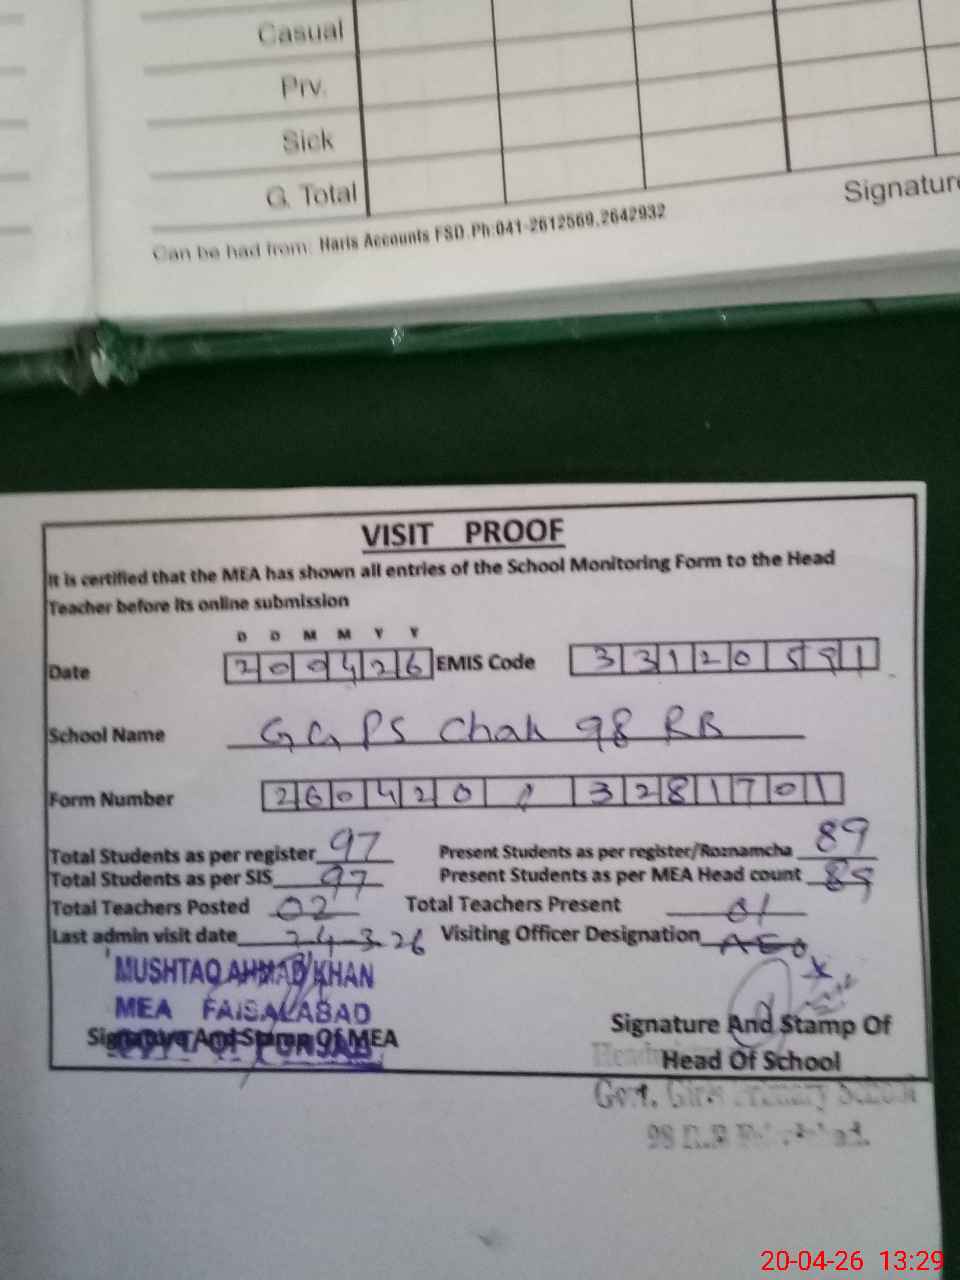 Casual
Prv.
Sick
G. Total
Signature
Can be had from: Haris Accounts FSD.Ph:041-2612569,2642932
VISIT PROOF
It is certified that the MEA has shown all entries of the School Monitoring Form to the Head
Teacher before its online submission
D D M M Y Y
Date 200426 EMIS Code 33120591
School Name GGPS Chak 98 RB
Form Number 260420 / 3281701
Total Students as per register 97 Present Students as per register/Roznamcha 89
Total Students as per SIS 97 Present Students as per MEA Head count 89
Total Teachers Posted 02 Total Teachers Present 01
Last admin visit date 24-3-26 Visiting Officer Designation AEO
MUSHTAQ AHMAD KHAN
MEA FAISALABAD
GOVT OF PUNJAB
Signature And Stamp Of MEA
Signature And Stamp Of
Head Of School
Govt. Girls Primary School
98 R.B
20-04-26 13:29